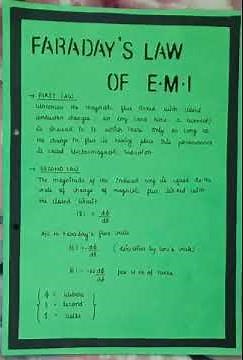 FARADAY'S LAW
OF E.M.I
→ FIRST LAW
Whenever the magnetic flux linked with closed
conductor changes, an emf (and hence a current)
is induced in it which lasts only so long as
the change in flux is taking place. This phenomenon
is called Electromagnetic Induction.
→ SECOND LAW
The magnitude of the induced emf is equal to the
rate of change of magnetic flux linked with
the closed circuit
|E| = dφ/dt
Faraday's
E = -dφ/dt (direction by Lenz's rule)
E = -N dφ/dt no of turns
φ = webers
t = second
E = volts